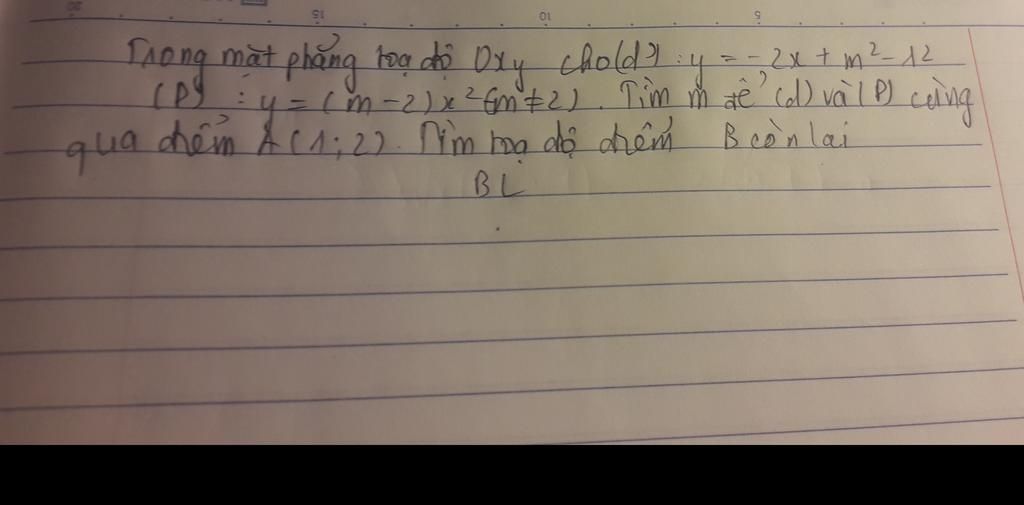 20 15 10 5
Trong mặt phẳng toạ độ Oxy cho (d) : y = -2x + m² - 12
(P) : y = (m-2)x² (m ≠ 2). Tìm m để (d) và (P) cùng
qua điểm A(1;2). Tìm toạ độ điểm B còn lại
BL